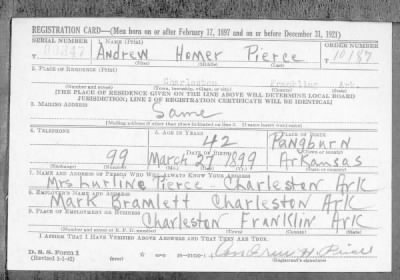 REGISTRATION CARD—(Men born on or after February 17, 1897 and on or before December 31, 1921)
SERIAL NUMBER 1. NAME (Print) ORDER NUMBER
Andrew Homer Pierce 10187
(First) (Middle) (Last)
2. PLACE OF RESIDENCE (Print)
Charleston Franklin Ark
(Number and street) (Town, township, village, or city) (County) (State)
[THE PLACE OF RESIDENCE GIVEN ON THE LINE ABOVE WILL DETERMINE LOCAL BOARD
JURISDICTION; LINE 2 OF REGISTRATION CERTIFICATE WILL BE IDENTICAL]
3. MAILING ADDRESS
Same
[Mailing address if other than place indicated on line 2. If same insert word same]
4. TELEPHONE 5. AGE IN YEARS PLACE OF BIRTH
42 Pangburn
DATE OF BIRTH (Town or county)
99 March 27 1899 Arkansas
(Exchange) (Number) (Mo.) (Day) (Yr.) (State or country)
7. NAME AND ADDRESS OF PERSON WHO WILL ALWAYS KNOW YOUR ADDRESS
Mrs Lurline Pierce Charleston Ark
8. EMPLOYER'S NAME AND ADDRESS
Mark Bramlett Charleston Ark
9. PLACE OF EMPLOYMENT OR BUSINESS
Charleston Franklin Ark
(Number and street or R. F. D. number) (Town) (County) (State)
I AFFIRM THAT I HAVE VERIFIED ABOVE ANSWERS AND THAT THEY ARE TRUE.
D. S. S. Form 1
(Revised 1-1-42) (over) Andrew H Pierce
(Registrant's signature)